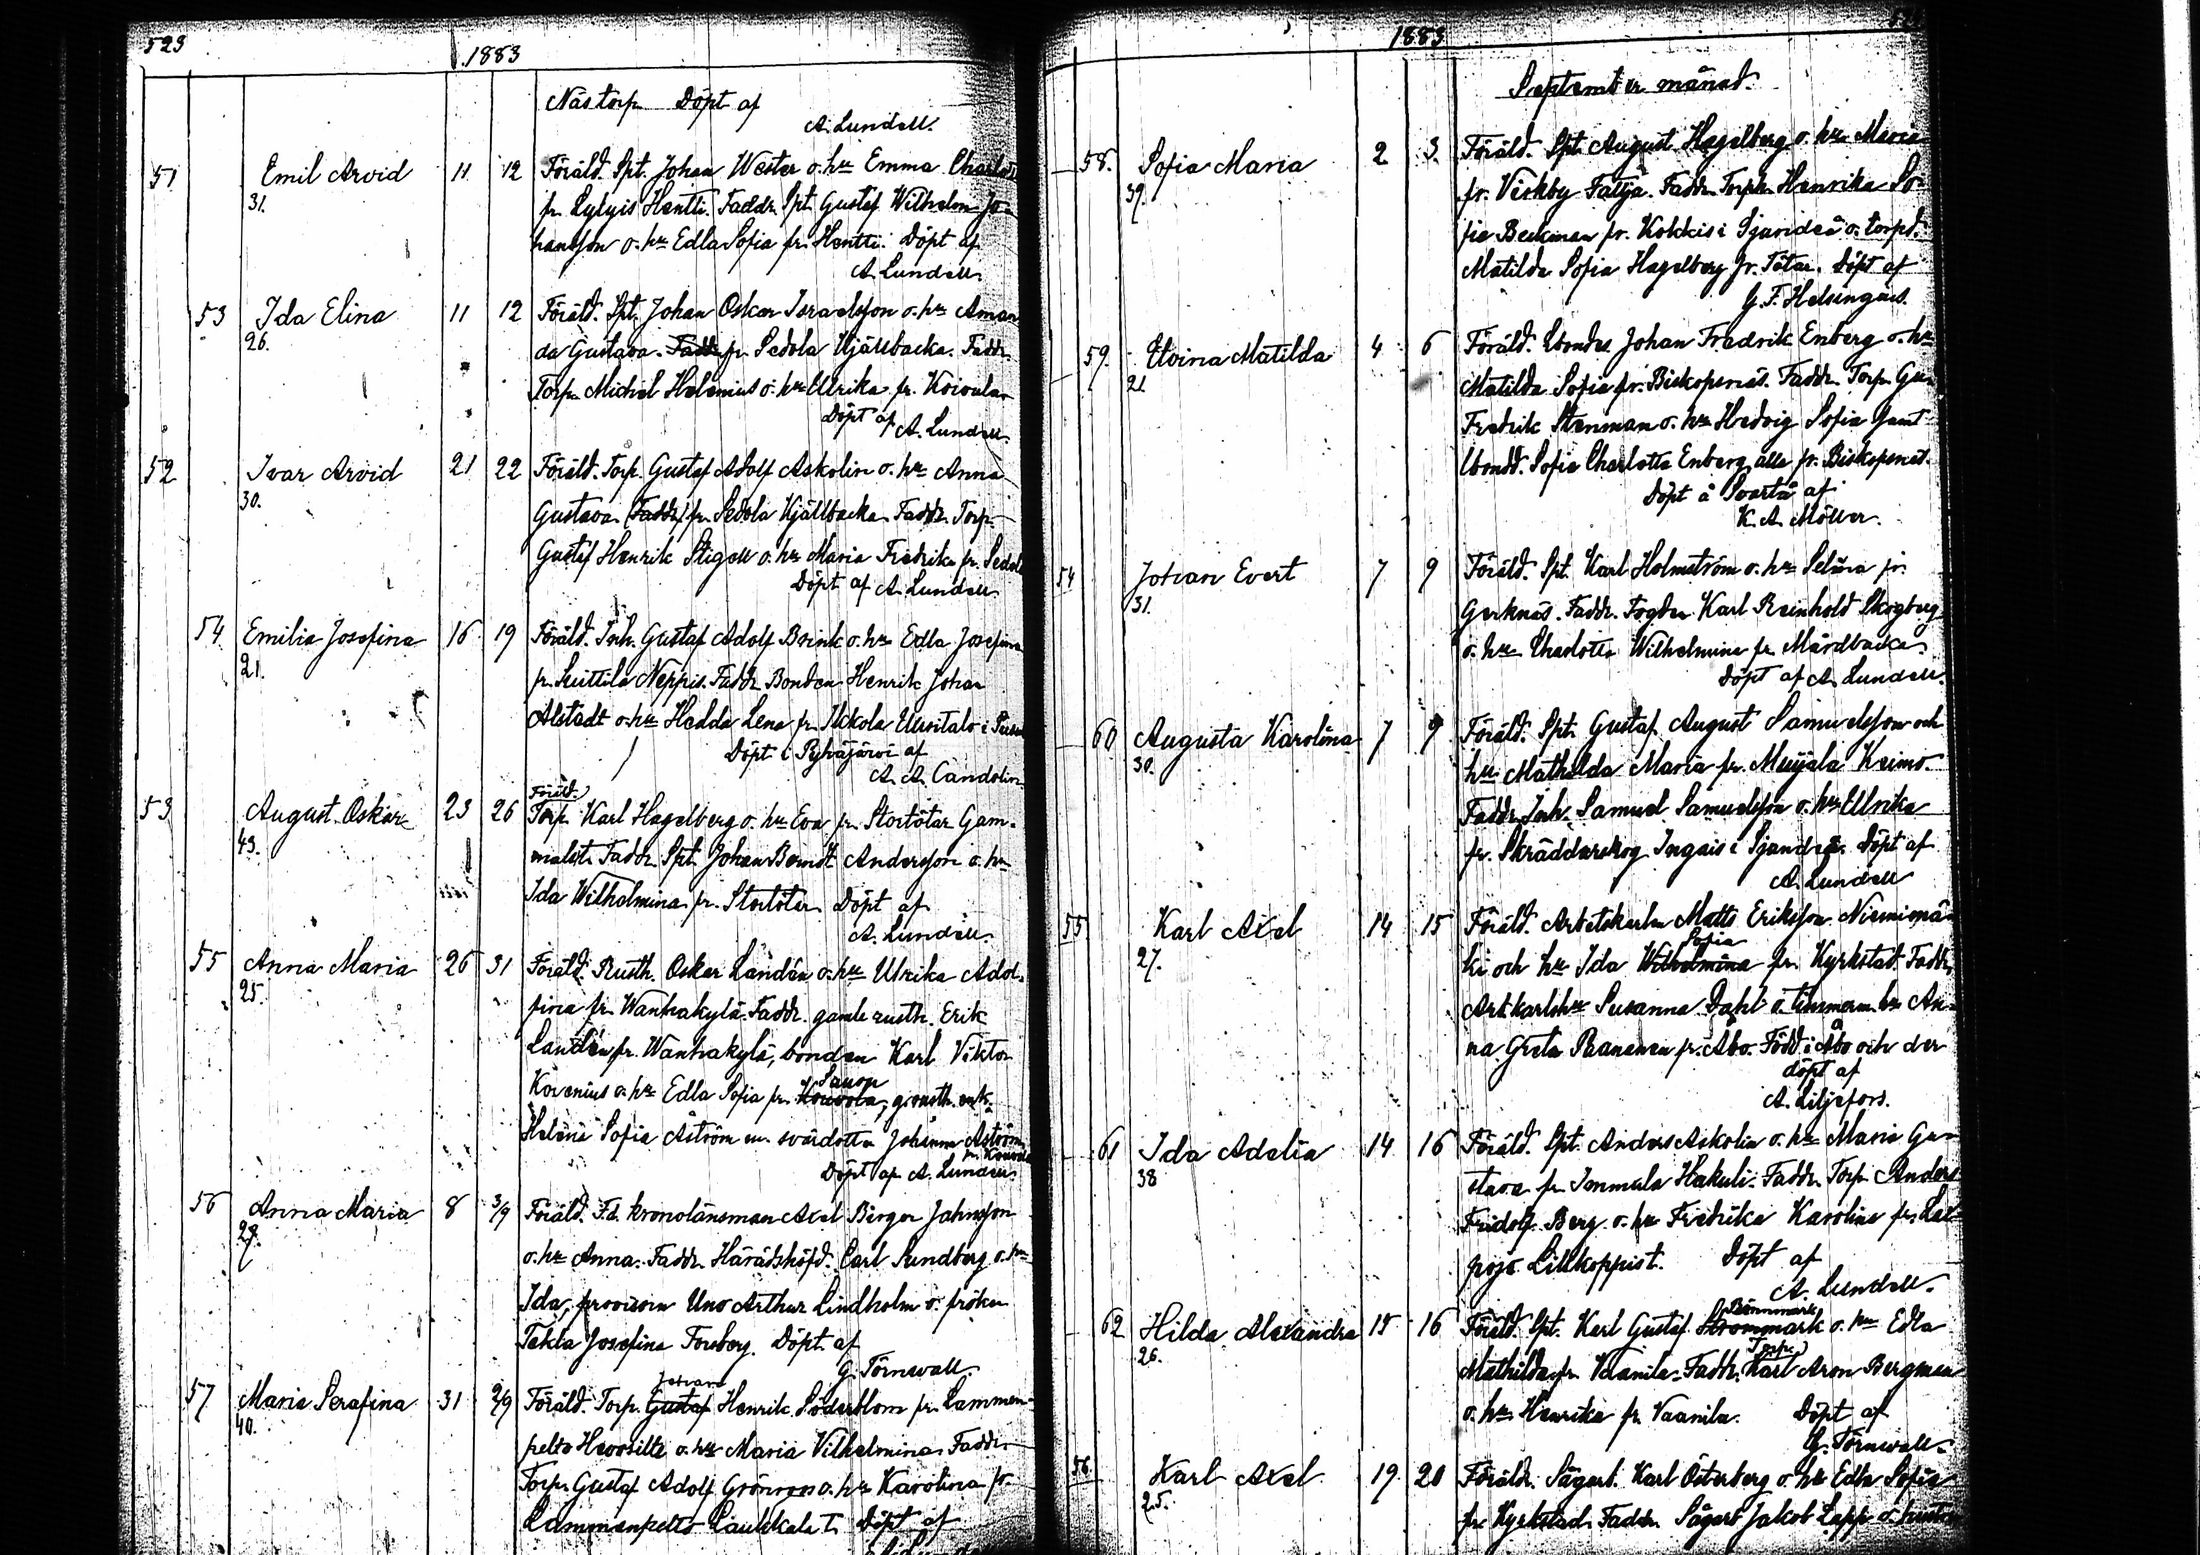 523
1883
Nästorp Döpt af
A. Lundell.
51 Emil Arvid 11 12 Föräld. Spt. Johan Wester o. hu Emma
31. fr. Lylyis Hentti. Faddr. Spt. Gustaf Wilhelm Jo-
hansson o. hu Edla Sofia fr. Hentti. Döpt af
A. Lundell.
53 Ida Elina 11 12 Föräld. Spt. Johan Oskar Israelsson o. hu Aman
26. da Gustava. Faddr. fr. Sedola Kjällbacka. Faddr.
Torp. Michel Helenius o. hu Ulrika fr. Koivula
Döpt af A. Lundell.
52 Ivar Arvid 21 22 Föräld. Torp. Gustaf Adolf Askolin o. hu Anna
30. Gustava (Faddr) fr. Sedola Kjällbacka. Faddr. Torp.
Gustaf Henrik Stigell o. hu Maria Fredrika fr. Sedola
Döpt af A. Lundell.
54. Emilia Josefina 16 19 Föräld. Inh. Gustaf Adolf Brink o. hu Edla Josefina
21. fr. Suittila Neppis. Faddr. Bonden Henrik Johan
Alstadt o. hu Hedda Lena fr. Ikkola Uusitalo i
Döpt i Pyhäjärvi af
A. A. Candolin
Föräld.
53 August Oskar 23 26 Torp. Karl Hagelberg o. hu Eva fr. Stortötar Gam-
43. malst. Faddr. Spt. Johan Berndt Andersson o. hu
Ida Wilhelmina fr. Stortötar. Döpt af
A. Lundell.
55 Anna Maria 26 31 Föräld. Rusth. Oskar Landén o. hu Ulrika Adol-
25. fina fr. Wanhakylä. Faddr. gamle rusth. Erik
Landén fr. Wanhakylä, bonden Karl Viktor
Sanor
Kovenius o. hu Edla Sofia fr. Kouvola,
Helena Sofia Åström Johanna Åström
fr. Kouvola
Döpt af A. Lundell.
56 Anna Maria 8 3/9 Föräld. F.d. kronolänsman Axel Birger Jahnsson
29. o. hu Anna. Faddr. Häradshöfd. Carl Sundberg o. hu
Ida, provisorn Uno Arthur Lindholm o. fröken
Tekla Josefina Forsberg. Döpt af
G. Törnwall.
Johan
57 Maria Serafina 31 2/9 Föräld. Torp. Gustaf Henrik Söderblom fr. Lammen-
40. pelto Hevosilta o. hu Maria Vilhelmina. Faddr.
Torp. Gustaf Adolf Grönroos o. hu Karolina fr.
Lammenpelto Laukkala T. Döpt af
1883
September månad.
58. Sofia Maria 2 3. Föräld. Spt. August Hagelberg o. hu Maria
39. fr. Virkby Tattja. Faddr. Torph. Henrika So-
fia Beckman fr. Kokkis i Sjundeå o. torpd.
Matilda Sofia Hagelberg fr. Tötar. Döpt af
G. F. Helsingius.
59. Elvina Matilda 4 6 Föräld. Lbonden Johan Fredrik Enberg o. hu
21. Matilda Sofia fr. Biskopsnäs. Faddr. Torp. Gu.
Fredrik Stenman o. hu Hedvig Sofia samt
lbondd. Sofia Charlotta Enberg, alla fr. Biskopsnäs.
Döpt å Svartå af
K. A. Möller.
54 Johan Evert 7 9 Föräld. Spt. Karl Holmström o. hu Selina fr.
31. Gerknäs. Faddr. Fogden Karl Reinhold Skogberg
o. hu Charlotta Wilhelmina fr. Mårdbacka.
Döpt af A. Lundell.
60 Augusta Karolina 7 9 Föräld. Spt. Gustaf August Samuelsson och
30. hu Mathilda Maria fr. Muijala Keimo.
Faddr. Inh. Samuel Samuelsson o. hu Ulrika
fr. Skräddarskog Ingais i Sjundeå. Döpt af
A. Lundell
55 Karl Axel 14 15 Föräld. Arbetskarlen Matts Eriksson Nieminä
Sofia
27. ki och hu Ida Wilhelmina fr. Kyrkstad. Faddr.
Arb.karlshu Susanna Dahl o. timmerm.hu An-
na Greta Paananen fr. Åbo. Född i Åbo och der
döpt af
A. Liljefors.
61 Ida Adelia 14 16 Föräld. Spt. Anders Askolin o. hu Maria Gu-
38 stava fr. Immula Hakuli. Faddr. Torp. Anders
Fridolf Berg o. hu Fredrika Karolina fr. Lal-
poja Lillkoppist. Döpt af
A. Lundell.
Brännmark
62 Hilda Alexandra 15 16 Föräld. Spt. Karl Gustaf Strommark o. hu Edla
Torp.
26. Mathilda fr. Vaanila. Faddr. Karl Aron Bergman
o. hu Henrika fr. Vaanila. Döpt af
G. Törnwall.
56 Karl Axel 19 20 Föräldr. Sågarb. Karl Österberg o. hu Edla Sofia
25. fr. Kyrkstad. Faddr. Sågarb. Jakob Lapp o.